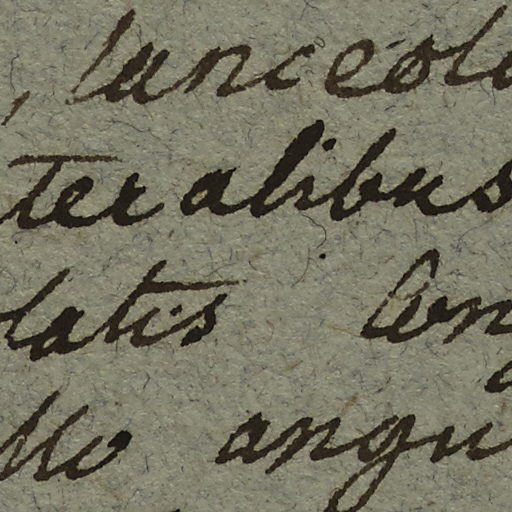 , lanceol
teralibus
latis lon
llo angu